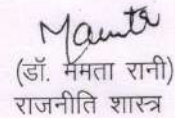 Mamta
(डॉ. ममता रानी)
राजनीति शास्त्र